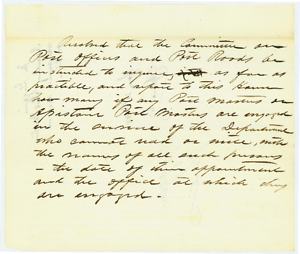 Resolved that the Committee on
Post Offices and Post Roads be
instructed to inquire, as far as
practible, and report to this House
how many if any Post masters or
Assistant Post Masters are engaged
in the service of the Department
who cannot read or write, with
the names of all such persons
- the date of their appointment
and the office at which they
are engaged -